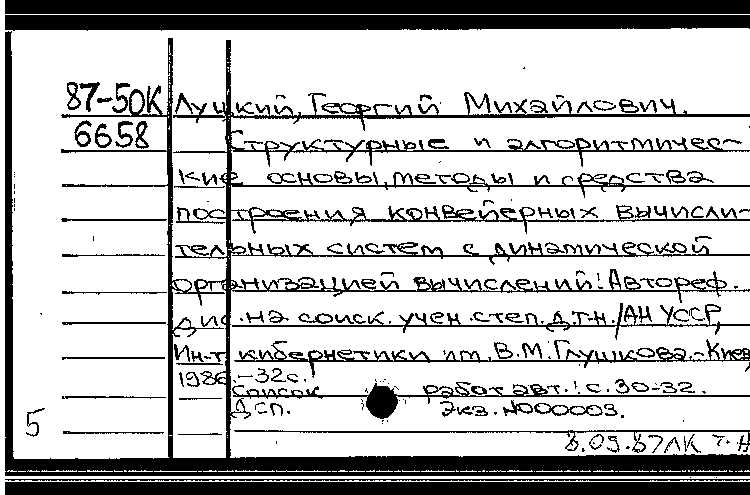 87-50К Луцкий, Георгий Михайлович.
6658 Структурные и алгоритмичес-
кие основы, методы и средства
построения конвейерных вычисли-
тельных систем с динамической
организацией вычислений: Автореф.
дис. на соиск. учен. степ. д.т.н. / АН УССР,
Ин-т кибернетики им. В.М. Глушкова.-Киев,
1986.-32с.
Список работ авт.: с. 30-32.
Дсп. Экз. N000003.
5
8.09.87ЛК Т.Н